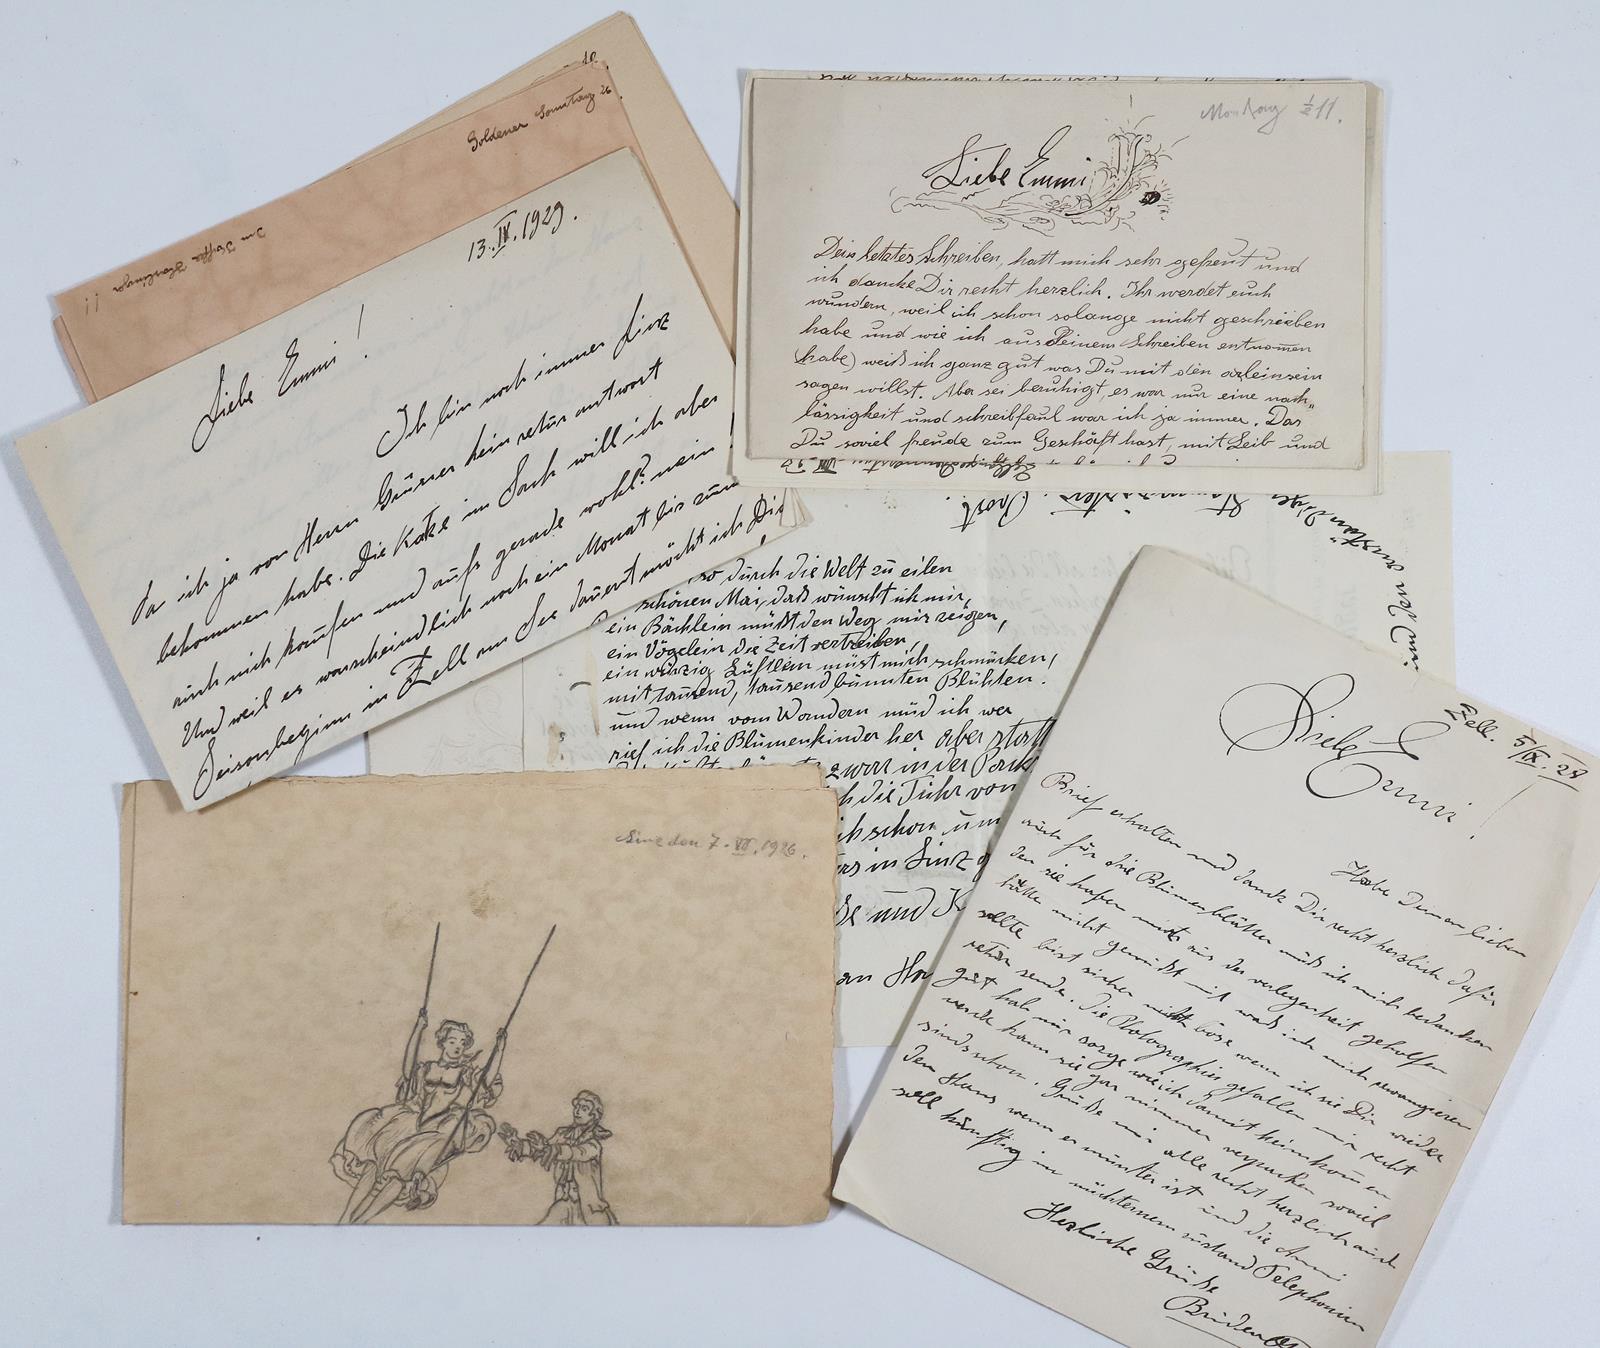 Goldener Sonntag 26
13.IV.1929.
Liebe Emmi!
Ich bin noch immer Linz
da ich ja von Herrn Gürner kein retur antwort
bekommen habe. Die Katze im Sack will ich aber
auch nich kaufen und aufs gerade wohl? nein
Und weil es warscheindlich noch ein Monat bis zum
Seisonbeginn in Zell an See dauert möcht ich Dir
Monday ½ 11.
Liebe Emmi
Dein letztes Schreiben, hatt mich sehr gefreut und
ich dancke Dir recht herzlich. Ihr werdet euch
wundern, weil ich schon solange nicht geschrieben
habe und wie ich aus Deinem Schreiben entnomen
(habe) weiß ich ganz gut was Du mit den alleinsein
sagen willst. Aber sei beruhigt, es war nur eine nach„
lässigkeit und schreibfaul war ich ja immer. Das
Du soviel freude zum Geschäft hast, mit Leib und
so durch die Welt zu eilen
schönen Mai, daß wünscht ich mir,
ein Bächlein müßt den Weg mir zeigen,
ein Vögelein die Zeit vertreiben,
ein würzig Lüftlein müst mich schmücken,
mit tausend, tausend bunnten Blühten.
und wenn vom Wandern müd ich wer
rief ich die Blumenkinder her aber statt
zwar in der Park
die Tühr von
ich schon um
in Linz
und K
an
Zell. 5/IX.28
Liebe Emmi!
Habe Deinen lieben
Brief erhalten und danke Dir recht herzlich dafür
auch für die Blumenblätter muß ich mich bedanken
den sie haben mich aus der verlegenheit geholfen
hätte nicht gewußt mit was ich mich revangieren
sollte bist sicher nicht böse wenn ich sie Dir wieder
retur sende. Die Photographien gefallen mir recht
gut hab nur sorge wie ich damit heimkommen
werde kann sie gar nimmer verpacken soviel
sinds schon. Grüße mir alle recht herzlich auch
den Hans wenn er munter ist und die Anni
soll künftig im nüchternem zustand Telephonieren
Herzliche Grüße
Bruder
Linz den 7.VII.1926.